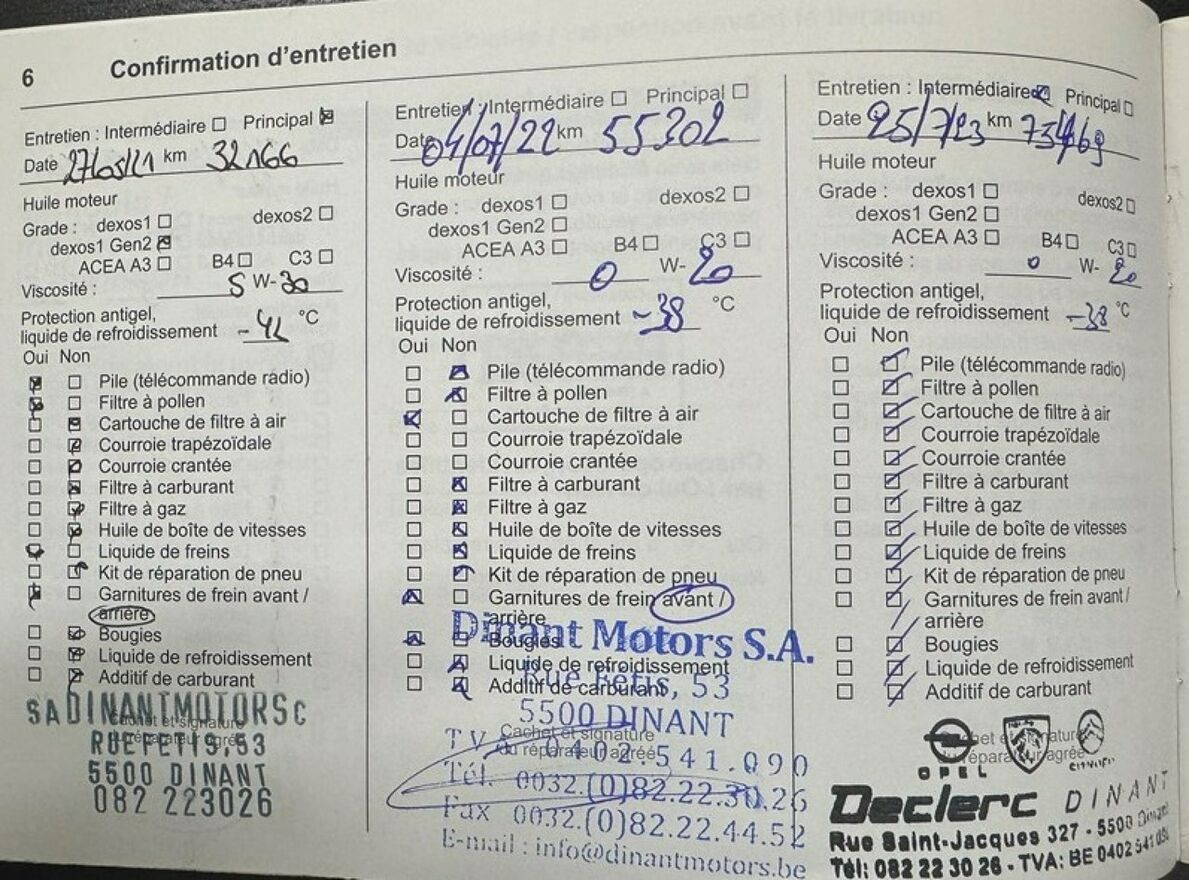 6 Confirmation d'entretien
Entretien : Intermédiaire ☐ Principal ☒
Date 27/05/21 km 32166
Huile moteur
Grade : dexos1 ☐ dexos2 ☐
dexos1 Gen2 ☒
ACEA A3 ☐ B4 ☐ C3 ☐
Viscosité : 5 W-30
Protection antigel,
liquide de refroidissement °C
Oui Non
☒ ☐ Pile (télécommande radio)
☒ ☐ Filtre à pollen
☐ ☒ Cartouche de filtre à air
☐ ☒ Courroie trapézoïdale
☐ ☒ Courroie crantée
☐ ☒ Filtre à carburant
☐ ☒ Filtre à gaz
☐ ☒ Huile de boîte de vitesses
☒ ☐ Liquide de freins
☐ ☒ Kit de réparation de pneu
☒ ☐ Garnitures de frein avant /
arrière
☐ ☒ Bougies
☐ ☒ Liquide de refroidissement
☐ ☒ Additif de carburant
Cachet et signature
du réparateur agréé
SA DINANTMOTORS
RUE FETIS, 53
5500 DINANT
082 223026
Entretien : Intermédiaire ☐ Principal ☐
Date 04/07/22 km 55302
Huile moteur
Grade : dexos1 ☐ dexos2 ☐
dexos1 Gen2 ☐
ACEA A3 ☐ B4 ☐ C3 ☐
Viscosité : 0 W-20
Protection antigel,
liquide de refroidissement -38 °C
Oui Non
☐ ☒ Pile (télécommande radio)
☐ ☒ Filtre à pollen
☒ ☐ Cartouche de filtre à air
☐ ☐ Courroie trapézoïdale
☐ ☐ Courroie crantée
☐ ☒ Filtre à carburant
☐ ☒ Filtre à gaz
☐ ☒ Huile de boîte de vitesses
☐ ☒ Liquide de freins
☐ ☒ Kit de réparation de pneu
☒ ☐ Garnitures de frein avant /
arrière
☒ ☐ Bougies
☐ ☒ Liquide de refroidissement
☐ ☒ Additif de carburant
Cachet et signature
du réparateur agréé
Dinant Motors S.A.
Rue Fétis, 53
5500 DINANT
TV 0402.541.090
Tél. 0032.(0)82.22.30.26
Fax 0032.(0)82.22.44.52
E-mail : info@dinantmotors.be
Entretien : Intermédiaire ☒ Principal ☐
Date 25/7/23 km
Huile moteur
Grade : dexos1 ☐ dexos2 ☐
dexos1 Gen2 ☐
ACEA A3 ☐ B4 ☐ C3 ☐
Viscosité : 0 W-20
Protection antigel,
liquide de refroidissement -38 °C
Oui Non
☐ ☒ Pile (télécommande radio)
☐ ☒ Filtre à pollen
☐ ☒ Cartouche de filtre à air
☐ ☒ Courroie trapézoïdale
☐ ☒ Courroie crantée
☐ ☒ Filtre à carburant
☐ ☒ Filtre à gaz
☐ ☒ Huile de boîte de vitesses
☐ ☒ Liquide de freins
☐ ☒ Kit de réparation de pneu
☐ ☒ Garnitures de frein avant /
arrière
☐ ☒ Bougies
☐ ☒ Liquide de refroidissement
☐ ☒ Additif de carburant
Cachet et signature
du réparateur agréé
OPEL CITROËN
Declerc DINANT
Rue Saint-Jacques 327 - 5500 Dinant
Tél: 082 22 30 26 - TVA: BE 0402 541 090